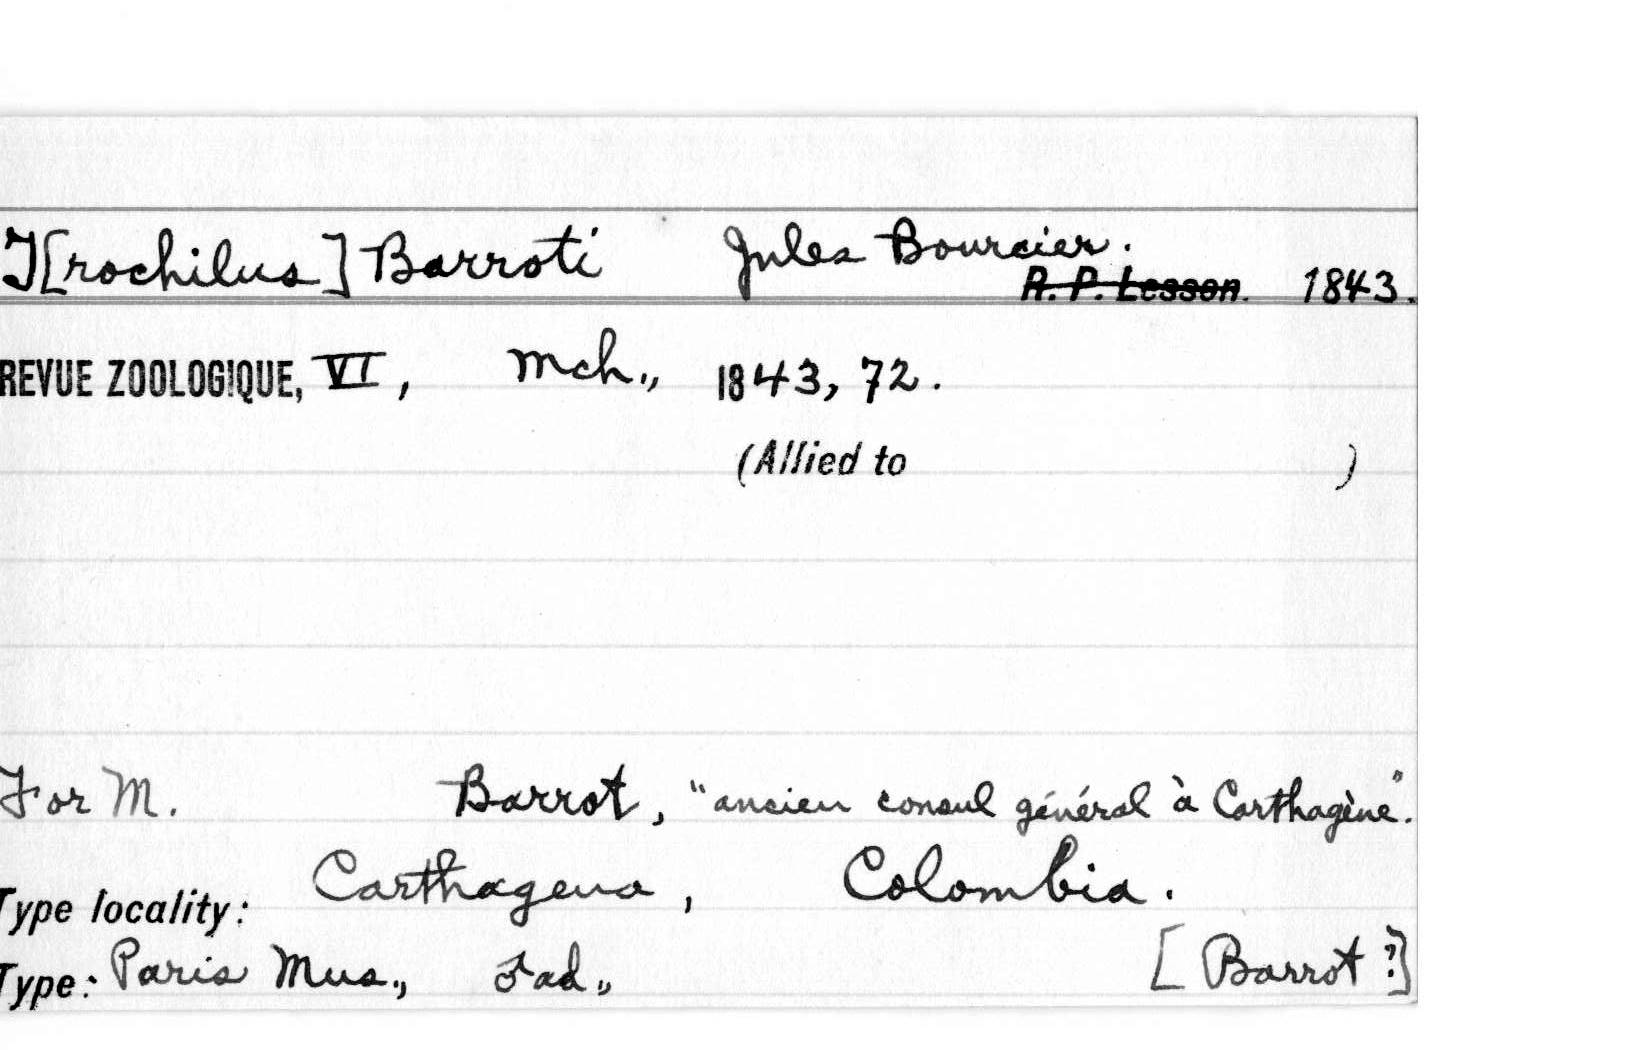 T[rochilus] Barroti Jules Bourcier.
R. P. Lesson. 1843.
REVUE ZOOLOGIQUE, VI, Mch., 1843, 72.
(Allied to )
For M. Barrot, "ancien consul général à Carthagène".
Type locality: Carthagena, Colombia.
Type: Paris Mus., ♂ad., [Barrot?]